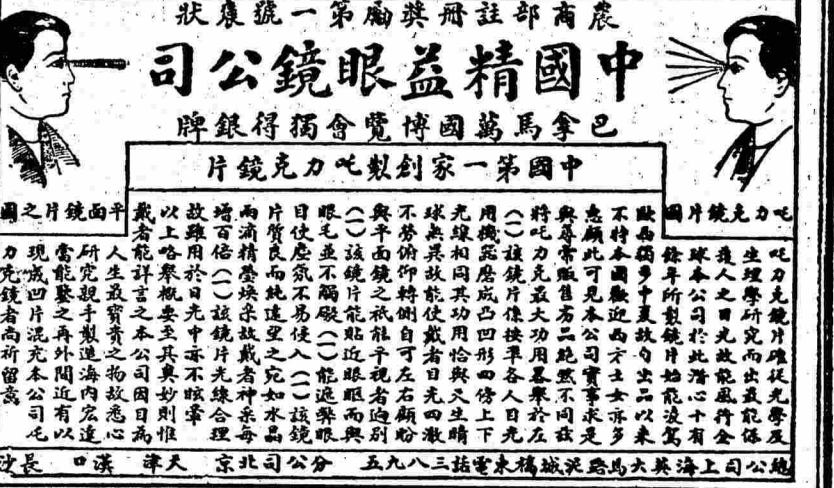 農商部註冊獎勵第一號褒狀
中國精益眼鏡公司
巴拿馬萬國博覽會獨得銀牌
中國第一家創製吒力克鏡片
吒力克鏡片圖
平面鏡片之圖
吒力克鏡片確從光學及
生理學研究而出最能保
護人之目光故能風行全
球本公司於此潛心十有
餘年所製鏡片始能凌駕
歐西獨步中夏故自出品以來
不特本國歡迎西方士女亦多
惠顧此可見本公司實事求是
與尋常販售劣品絕然不同茲
將吒力克最大功用畧舉於左
(一)該鏡片係按準各人目光
用機器磨成凸凹形四傍上下
光線相同其功用恰與天生睛
球無異故能使戴者目光四澈
不勞俯仰轉側自可左右顧盼
與平面鏡之祇能平視者迥別
(一)該鏡片能貼近眼眶而與
眼毛並不觸礙(一)能遮弊眼
目使塵氛不易侵入(一)該鏡
片質良而純遠望之宛如水晶
兩滴精瑩煥采故戴者神采每
增百倍(一)該鏡片光線合理
故雖用於日光中亦不眩暈
以上略舉概要至其奧妙則惟
戴者能詳言之本公司因目為
人生最寶貴之物故悉心
研究親手製造海內宏達
當能鑒之再外間近有以
現成凹片混充本公司吒
力克鏡者尚祈留意
總公司上海英大馬路泥城橋東電話三八九五 分公司北京 天津 漢口 長沙